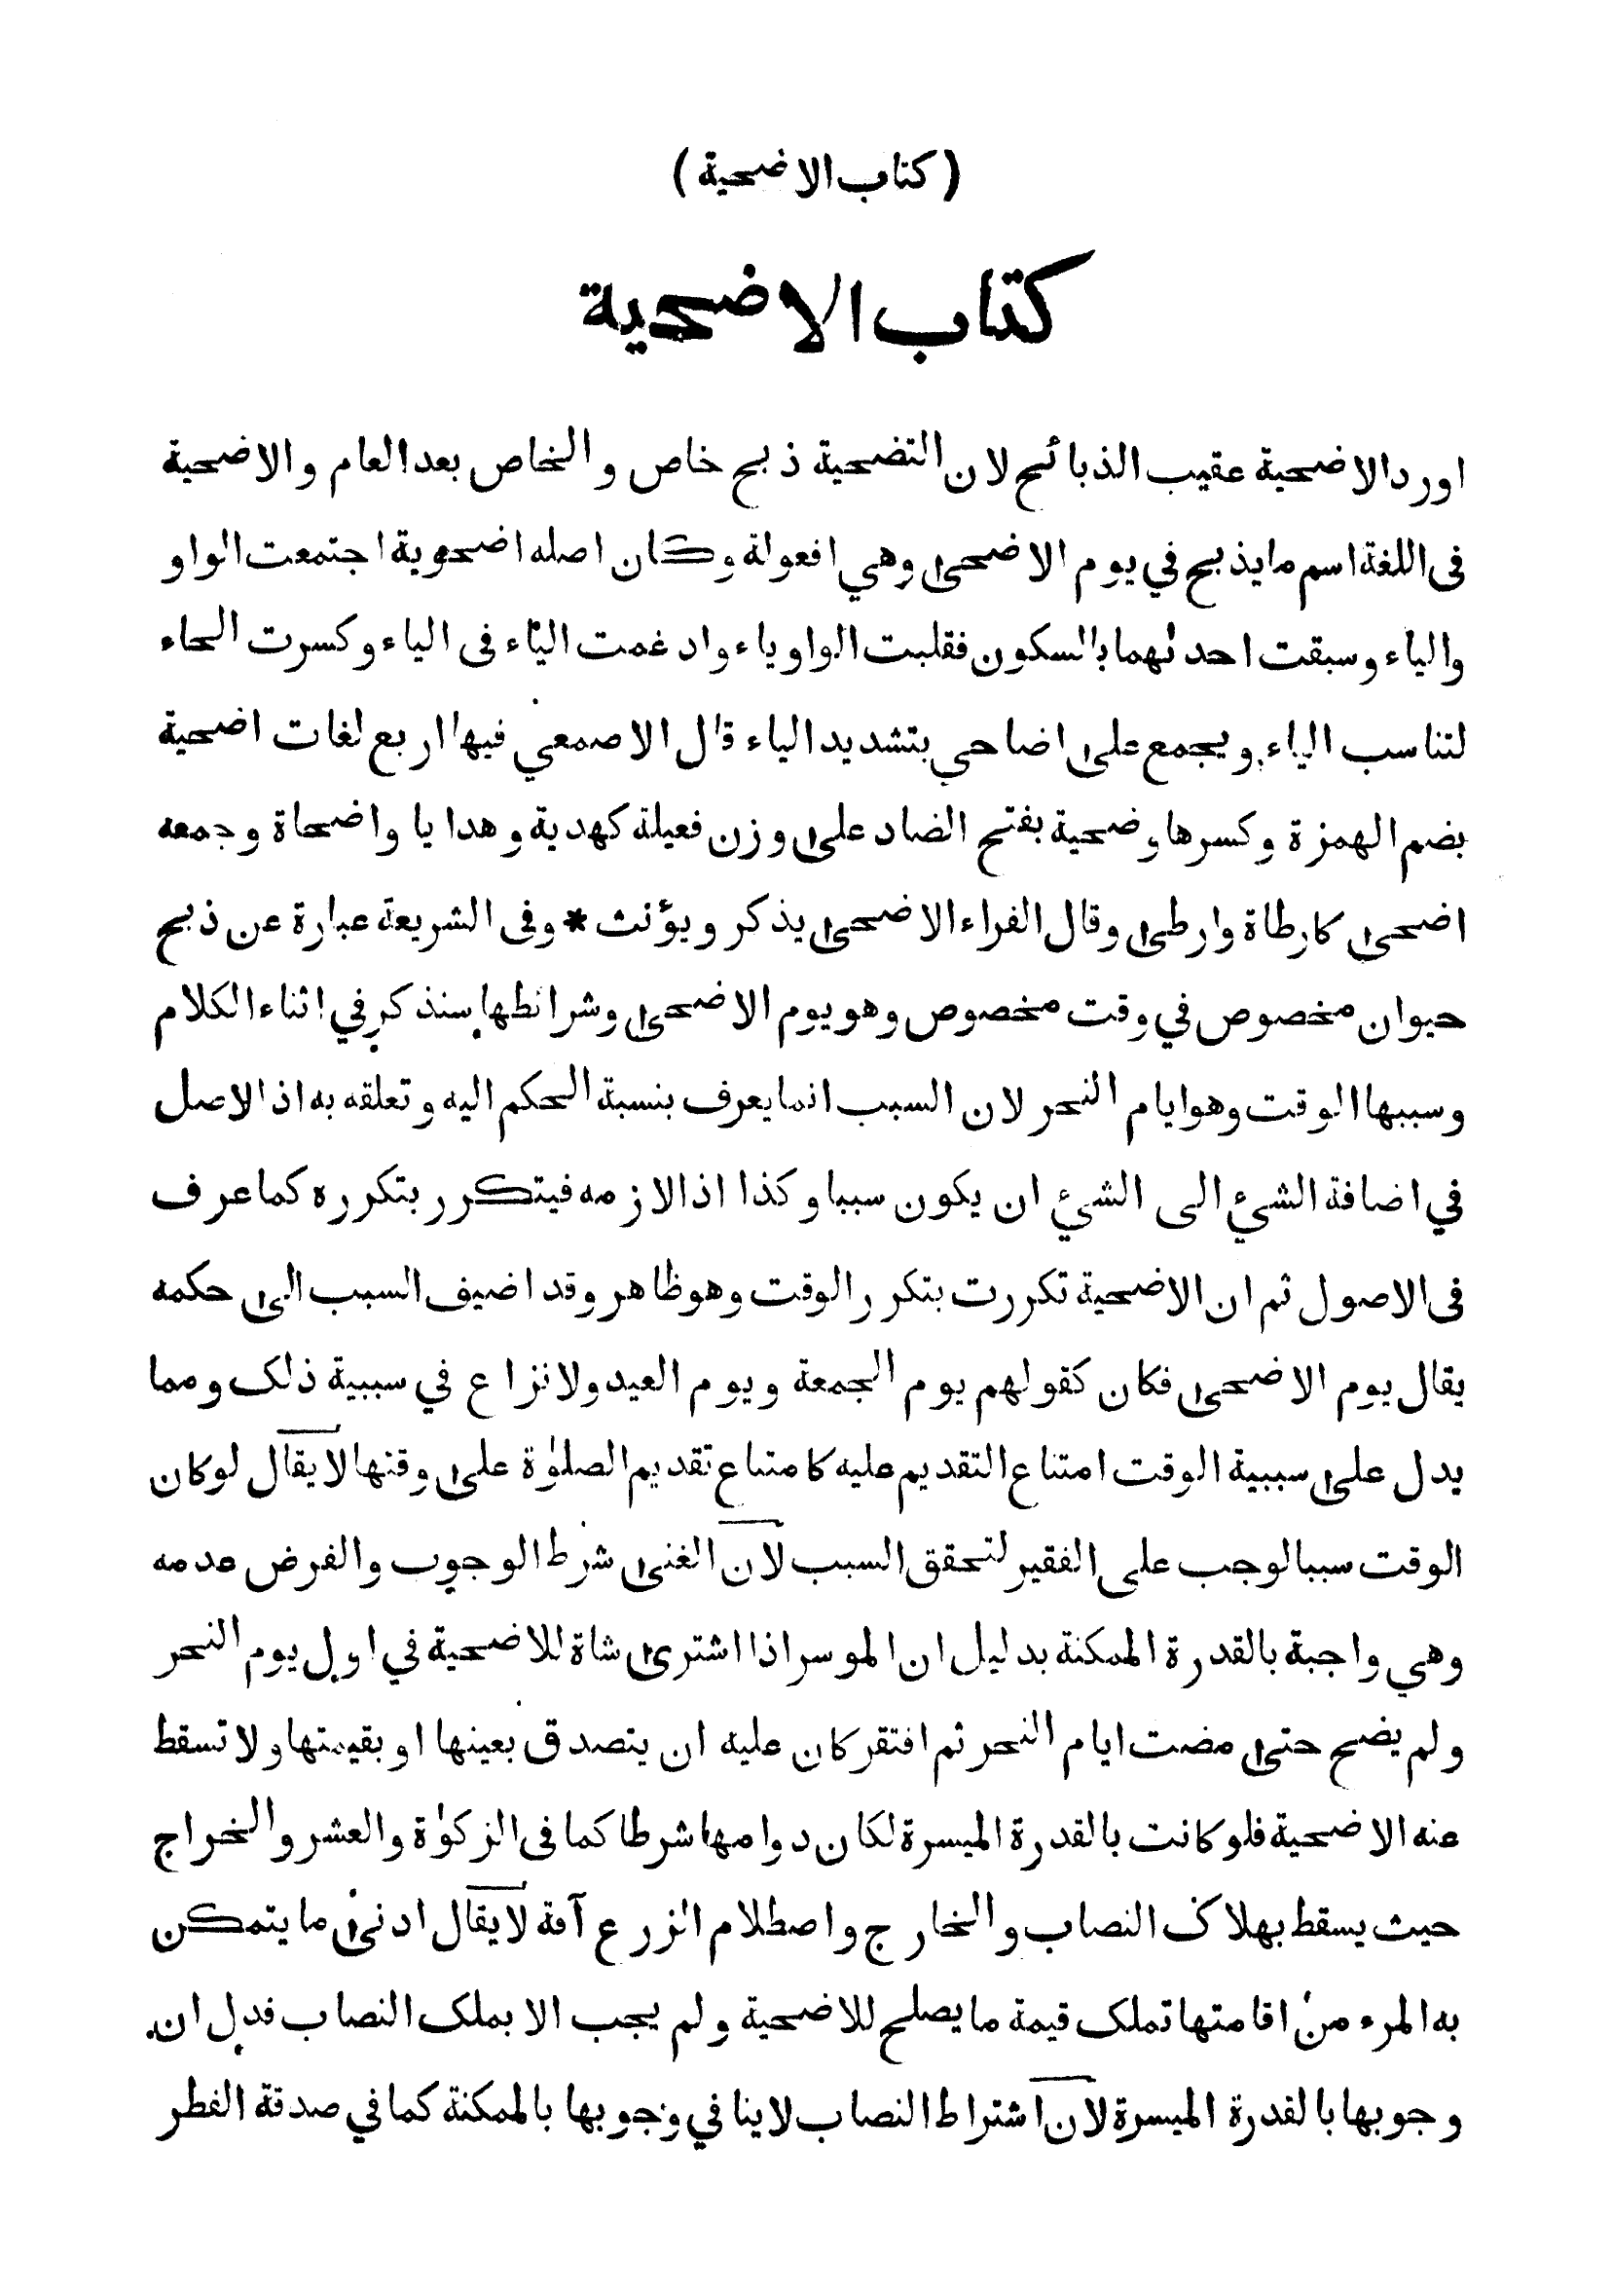 (كتاب الاضحية)
كتاب الاضحية
اورد الاضحية عقيب الذبائح لان التضحية ذبح خاص والخاص بعد العام والاضحية
فى اللغة اسم ما يذبح في يوم الاضحى وهي افعولة وكان اصله اضحوية اجتمعت الواو
والياء وسبقت احدٰهما بالسكون فقلبت الواو ياء وادغمت الياء فى الياء وكسرت الحاء
لتناسب الياء ويجمع على اضاحي بتشديد الياء قال الاصمعي فيها اربع لغات اضحية
بضم الهمزة وكسرها وضحية بفتح الضاد على وزن فعيلة كهدية وهدايا واضحاة وجمعه
اضحى كارطاة وارطى وقال الفراء الاضحى يذكر ويؤنث * وفى الشريعة عبارة عن ذبح
حيوان مخصوص في وقت مخصوص وهو يوم الاضحى وشرائطها سنذكر في اثناء الكلام
وسببها الوقت وهو ايام النحر لان السبب انما يعرف بنسبة الحكم اليه وتعلقه به اذ الاصل
في اضافة الشيء الى الشيء ان يكون سببا وكذا اذا لازمه فيتكرر بتكرره كما عرف
فى الاصول ثم ان الاضحية تكررت بتكرر الوقت وهو ظاهر وقد اضيف السبب الى حكمه
يقال يوم الاضحى فكان كقولهم يوم الجمعة ويوم العيد ولا نزاع في سببية ذلك ومما
يدل على سببية الوقت امتناع التقديم عليه كامتناع تقديم الصلوٰة على وقتها لا يقال لو كان
الوقت سببا لوجب على الفقير لتحقق السبب لان الغنى شرط الوجوب والفرض عدمه
وهي واجبة بالقدرة الممكنة بدليل ان الموسر اذا اشترى شاة للاضحية في اول يوم النحر
ولم يضح حتى مضت ايام النحر ثم افتقر كان عليه ان يتصدق بعينها او بقيمتها ولا تسقط
عنه الاضحية فلو كانت بالقدرة الميسرة لكان دوامها شرطا كما فى الزكوٰة والعشر والخراج
حيث يسقط بهلاك النصاب والخارج واصطلام الزرع آفة لا يقال ادنى ما يتمكن
به المرء من اقامتها تملك قيمة ما يصلح للاضحية ولم يجب الا بملك النصاب فدل ان
وجوبها بالقدرة الميسرة لان اشتراط النصاب لا ينافي وجوبها بالممكنة كما في صدقة الفطر